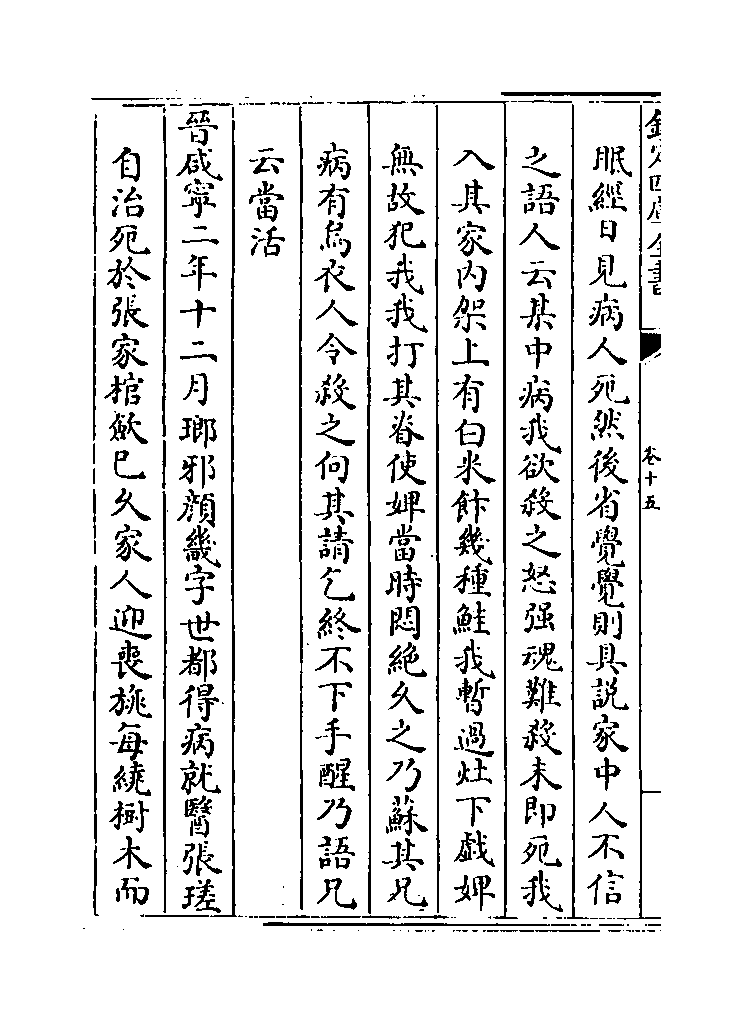 欽定四庫全書
卷十五
眠經日見病人死然後省覺覺則具説家中人不信
之語人云某中病我欲殺之怒强魂難殺未即死我
入其家内架上有白米飰幾種鮭我暫過灶下戯婢
無故犯我我打其脊使婢當時悶絶乆之乃蘇其兄
病有烏衣人令殺之向其請乞終不下手醒乃語兄
云當活
晉咸寧二年十二月瑯邪顔畿字世都得病就醫張瑳
自治死於張家棺斂已乆家人迎喪旐每繞樹木而